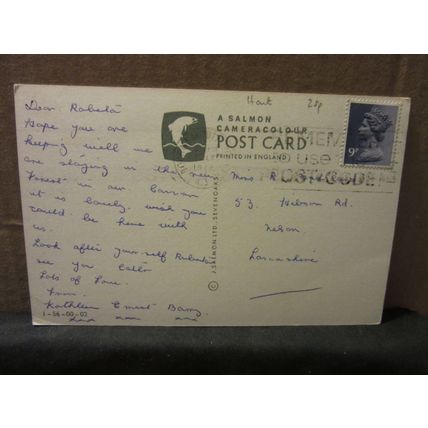 Dear Roberta
Hope you are
keeping well we
are staying in the new
Forest in our caravan
it is lovely wish you
could be here with
us.
Look after your self Roberta
see you later
Lots of Love.
from
Kathleen Ernest Barry
1-56-00-02
A SALMON
CAMERACOLOUR
POST CARD
PRINTED IN ENGLAND
© J. SALMON LTD., SEVENOAKS
Hants
25p
9P
use
POSTCODE
Miss R
53 Hebson Rd.
Nelson.
Lancashire